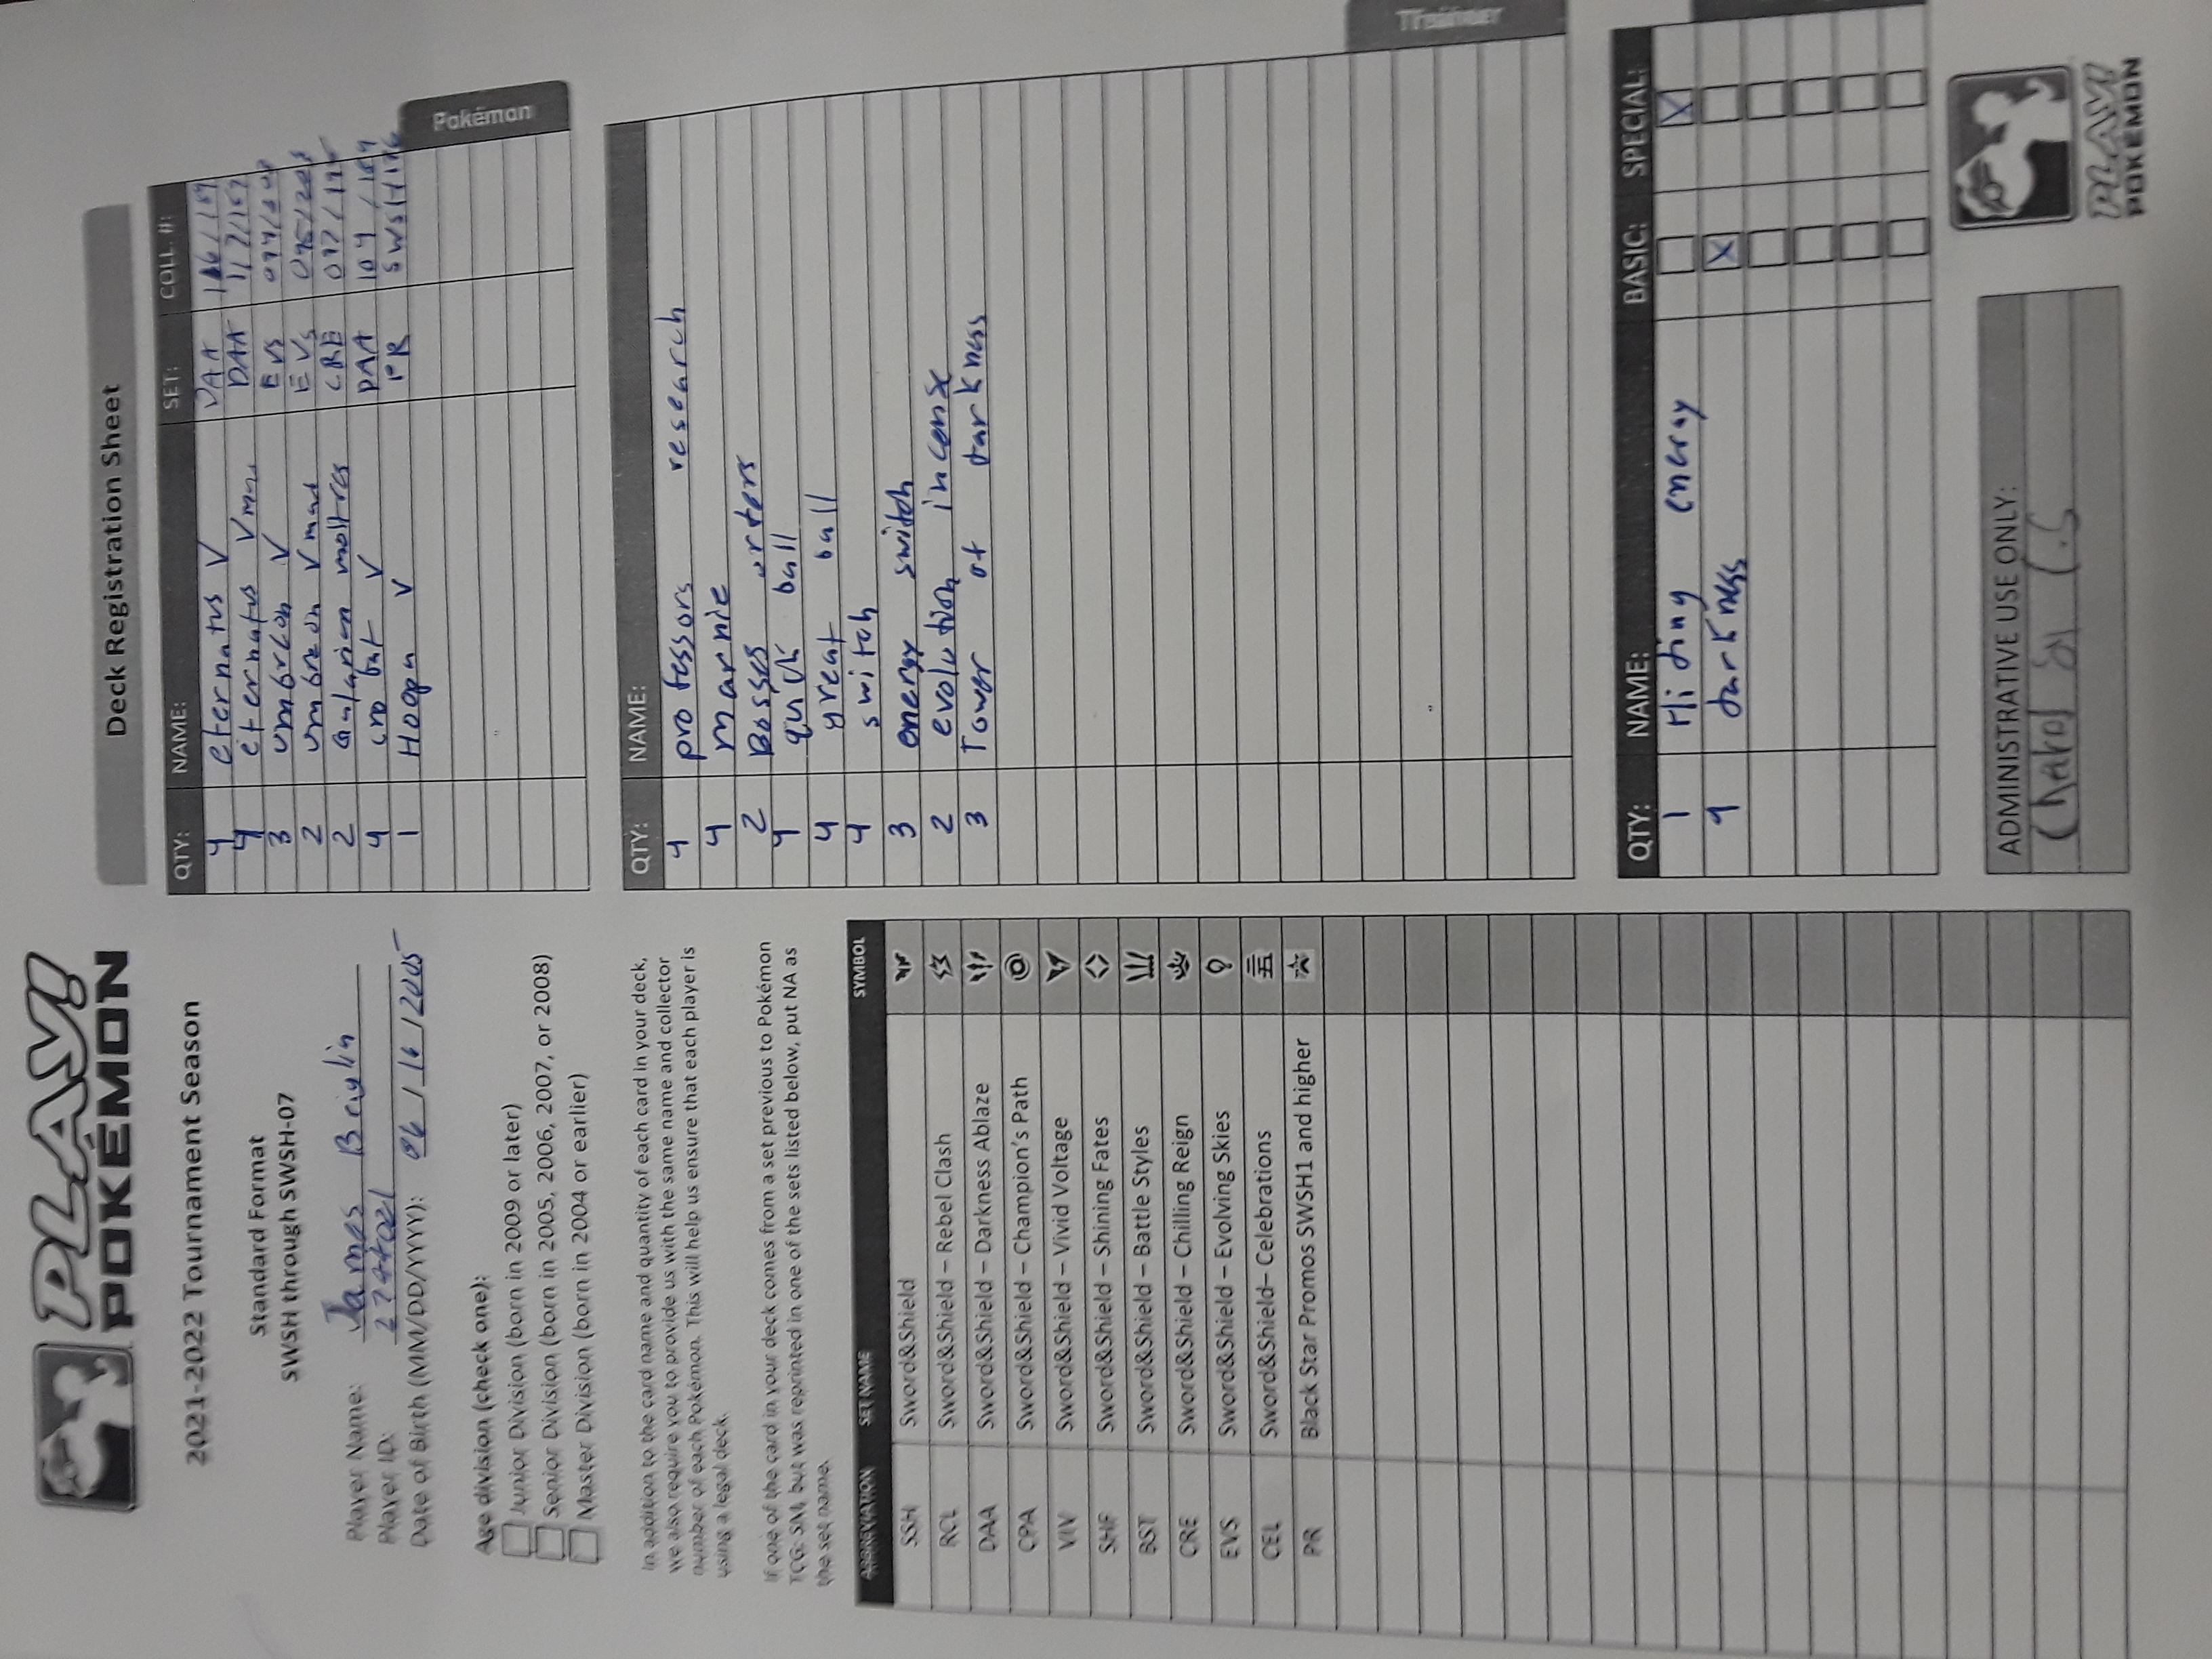 PLAY!
POKÉMON
2021-2022 Tournament Season
Standard Format
SWSH through SWSH-07
Player Name: James
Player ID: 2744021
Date of Birth (MM/DD/YYYY): 06/16/2005
Age division (check one):
Junior Division (born in 2009 or later)
Senior Division (born in 2005, 2006, 2007, or 2008)
Master Division (born in 2004 or earlier)
In addition to the card name and quantity of each card in your deck,
we also require you to provide us with the same name and collector
number of each Pokémon. This will help us ensure that each player is
using a legal deck.
If one of the card in your deck comes from a set previous to Pokémon
TCG: SM, but was reprinted in one of the sets listed below, put NA as
the set name.
ABBREVIATION SET NAME SYMBOL
SSH Sword&Shield
RCL Sword&Shield – Rebel Clash
DAA Sword&Shield – Darkness Ablaze
CPA Sword&Shield – Champion's Path
VIV Sword&Shield – Vivid Voltage
SHF Sword&Shield – Shining Fates
BST Sword&Shield – Battle Styles
CRE Sword&Shield – Chilling Reign
EVS Sword&Shield – Evolving Skies
CEL Sword&Shield– Celebrations
PR Black Star Promos SWSH1 and higher
Deck Registration Sheet
QTY: NAME: SET: COLL. #:
4 eternatus V DAA
4 eternatus Vmax DAA
3 umbreon V EVS
2 umbreon Vmax EVS
2 Galarian moltres CRE
4 crobat V DAA 104/189
1 Hoopa V PR
Pokémon
QTY: NAME:
4 professors research
4 marnie
2 Bosses orters
4 quick ball
4 great ball
4 switch
3 energy switch
2 evolution incense
3 Tower of darkness
Trainer
QTY: NAME: BASIC: SPECIAL:
1 Hiding energy X
9 darkness X
ADMINISTRATIVE USE ONLY:
PLAY!
POKÉMON